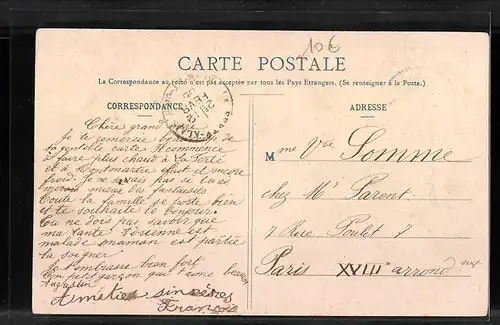 10€
CARTE POSTALE
La Correspondance au recto n'est pas acceptée par tous les Pays Etrangers. (Se renseigner à la Poste.)
CORRESPONDANCE
ADRESSE
Chère grand
Je te remercie de
ta gentille carte. Il commence
à faire plus chaud à La Ferté
et à Montmartre il fait encore
froid. Je ne sais pas si tu
Toute la famille se porte bien
et te souhaite le bonjour.
Tu ne dois pas savoir que
ma tante est
malade maman est partie
la soigner
Je t'embrasse bien fort
Ton petit garçon que t'aime beaucoup
Augustin
Amitiés sincères
François
Mme Vve Somme
chez Mr Parent
7 Rue Poulet 7
Paris XVIII arrond